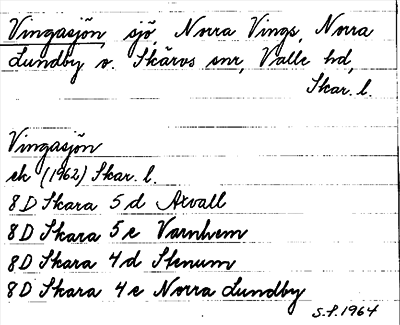 Vingasjön, sjö, Norra Vings, Norra
Lundby o. Skärvs snr, Valle hd,
Skar. l.
Vingasjön
ek (1962) Skar. l.
8D Skara 5 d Axvall
8D Skara 5 e Varnhem
8D Skara 4 d Stenum
8D Skara 4 e Norra Lundby
S.F. 1964